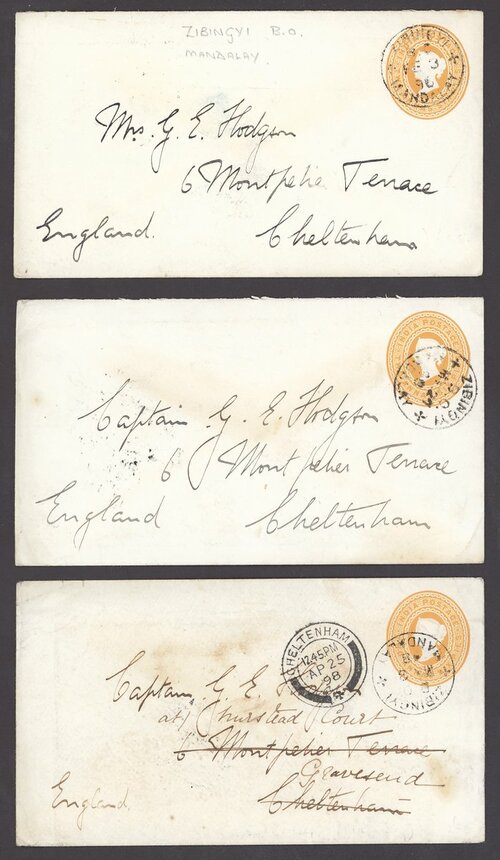 ZIBINGYI B.O.
MANDALAY
ZIBINGYI
98
MANDALAY
Mrs. G. E. Hodgson
6 Montpelie Terrace
England. Cheltenham
INDIA POSTAGE
ZIBINGYI
Captain G. E. Hodgson
6 Montpelier Terrace
England Cheltenham
INDIA POSTAGE
MANDALAY
ZIBINGYI
CHELTENHAM
12.45PM
AP 25
98
Captain G. E.
at Thurstead Court
6 Montpelier Terrace
Gravesend
England Cheltenham